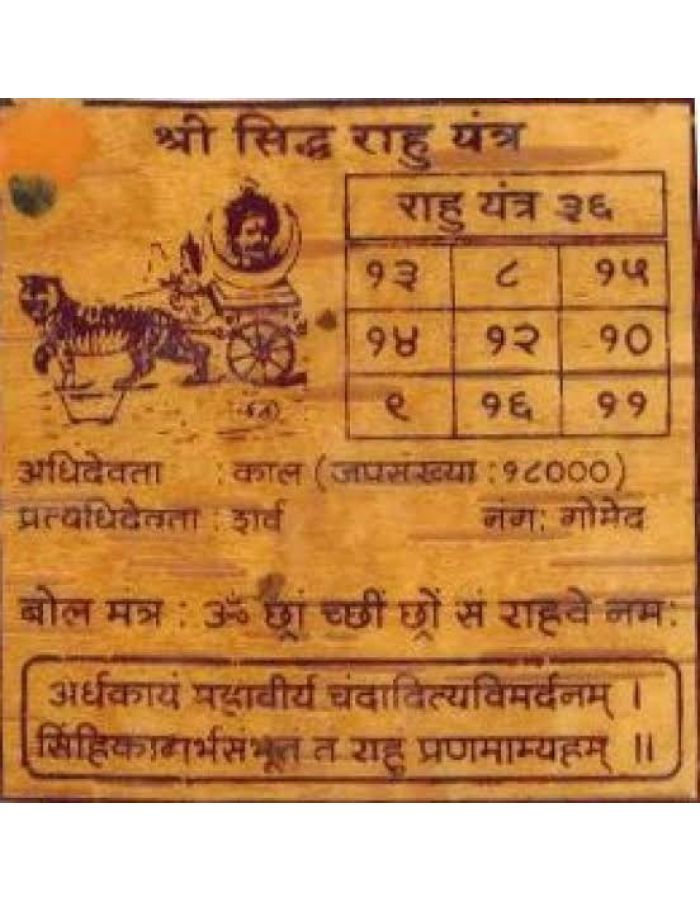 श्री सिद्ध राहु यंत्र
राहु यंत्र ३६
१३ ८ १५
१४ १२ १०
९ १६ ११
अधिदेवता : काल (जपसंख्या : १८०००)
प्रत्यधिदेवता : शर्व नंग: गोमेद
बोल मंत्र : ॐ छ्रां च्छीं छ्रों सं राहवे नम:
अर्धकायं महावीर्य चंदावित्यविमर्दनम् ।
सिंहिकागर्भसंभूत त राहु प्रणमाम्यहम् ॥